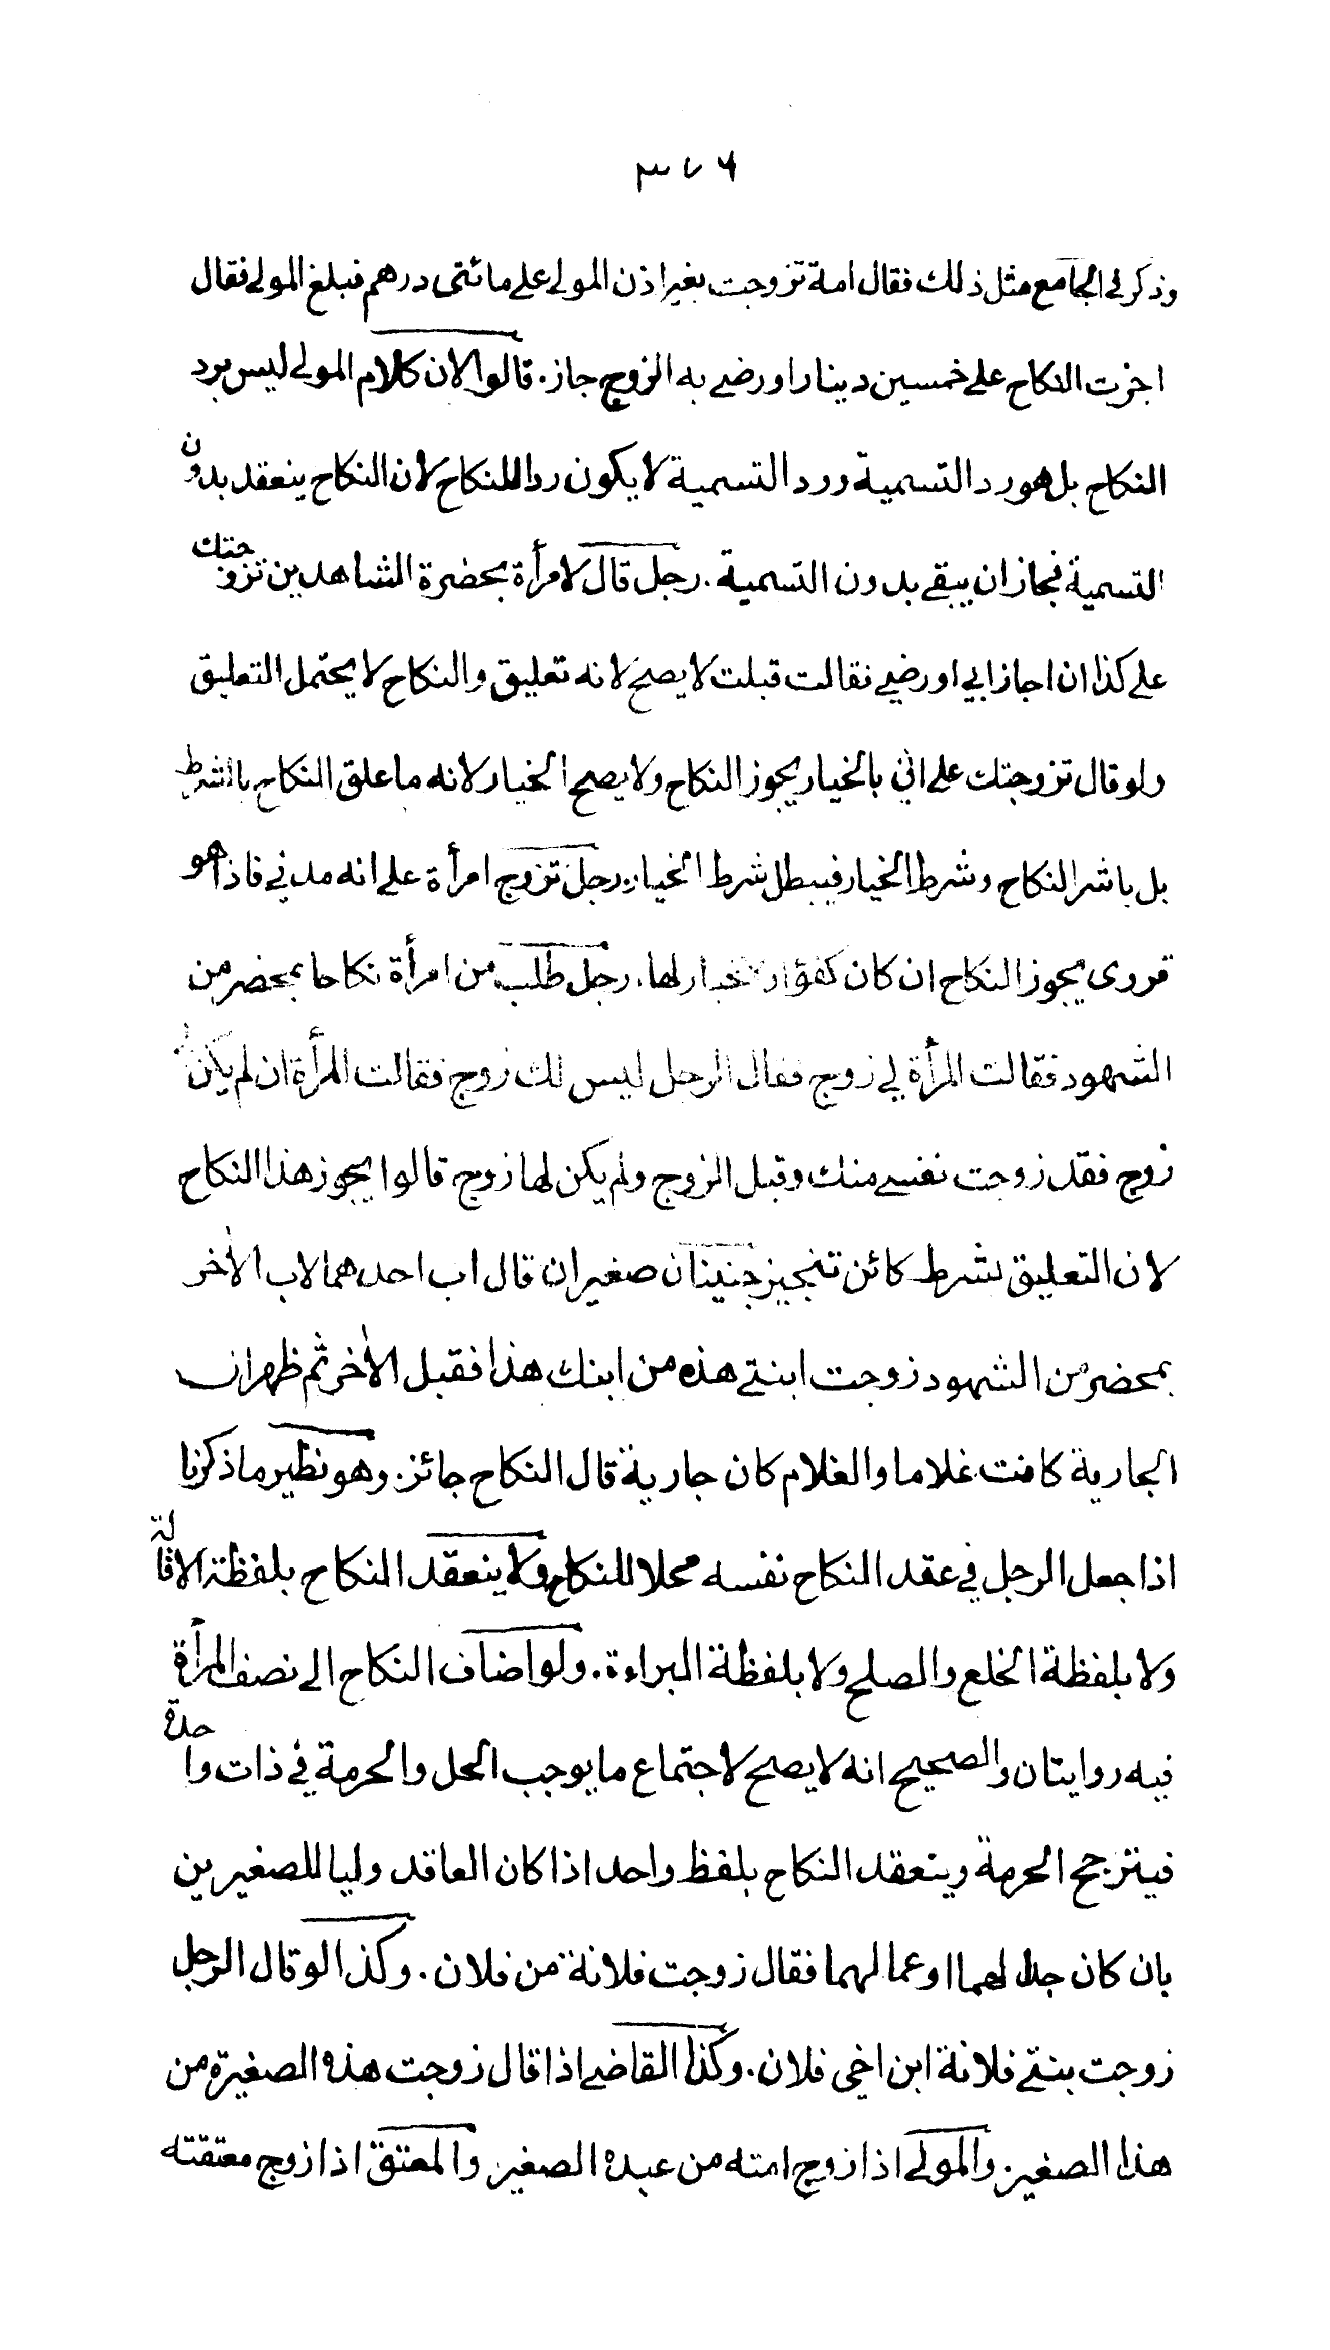 ٣٧٦
وذكر في الجامع مثل ذلك فقال امة تزوجت بغير اذن المولى على مائتى درهم فبلغ المولى فقال
اجزت النكاح على خمسين دينارا ورضى به الزوج جاز. قالوا لان كلام المولى ليس برد
النكاح بل هو رد التسمية ورد التسمية لا يكون ردا للنكاح لان النكاح ينعقد بدون
التسمية فجاز ان يبقى بدون التسمية. رجل قال لامرأة بحضرة الشاهدين تزوجتك
على كذا ان اجاز ابي او رضى فقالت قبلت لا يصح لانه تعليق والنكاح لا يحتمل التعليق
ولو قال تزوجتك على اني بالخيار يجوز النكاح ولا يصح الخيار لانه ما علق النكاح بالشرط
بل باشر النكاح وشرط الخيار فيبطل شرط الخيار. رجل تزوج امرأة على انه مدني فاذا هو
قروى يجوز النكاح ان كان كفؤا ولا خيار لها. رجل طلب من امرأة نكاحا بمحضر من
الشهود فقالت المرأة لي زوج فقال الرجل ليس لك زوج فقالت المرأة ان لم يكن لي
زوج فقد زوجت نفسى منك وقبل الزوج ولم يكن لها زوج قالوا يجوز هذا النكاح
لان التعليق بشرط كائن تنجيز صغيران قال اب احدهما لاب الاخر
بمحضر من الشهود زوجت ابنتى هذه من ابنك هذا فقبل الاخر ثم ظهر ان
الجارية كانت غلاما والغلام كان جارية قال النكاح جائز. وهو نظير ما ذكرنا
اذا جعل الرجل في عقد النكاح نفسه محلا للنكاح ولا ينعقد النكاح بلفظة الاقالة
ولا بلفظة الخلع والصلح ولا بلفظة البراءة. ولو اضاف النكاح الى نصف المرأة
فيه روايتان والصحيح انه لا يصح لاجتماع ما يوجب الحل والحرمة في ذات واحدة
فيترجح الحرمة وينعقد النكاح بلفظ واحد اذا كان العاقد وليا للصغيرين
بان كان جدا لهما او عما لهما فقال زوجت فلانة من فلان. وكذا لو قال الرجل
زوجت بنتى فلانة ابن اخي فلان. وكذا القاضى اذا قال زوجت هذه الصغيرة من
هذا الصغير. والمولى اذا زوج امته من عبده الصغير والمعتق اذا زوج معتقته